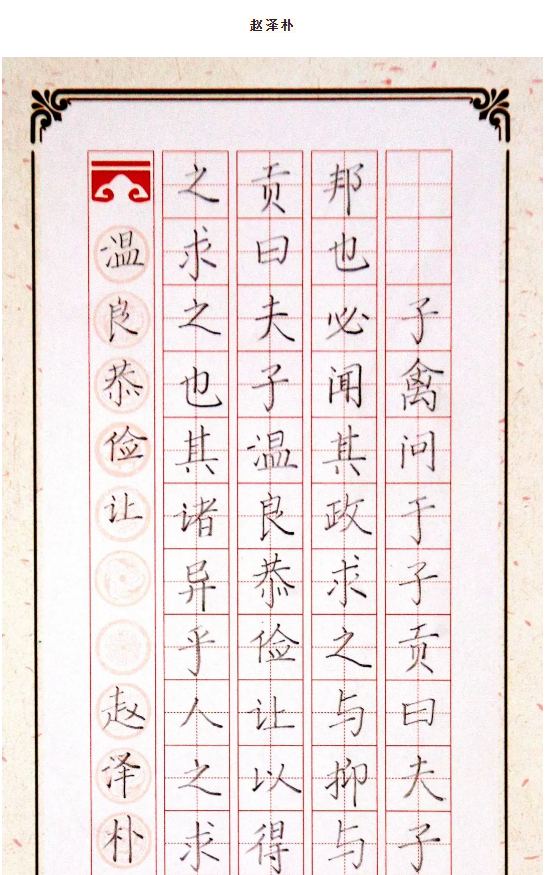 赵泽朴
子禽问于子贡曰夫子
邦也必闻其政求之与抑与
贡曰夫子温良恭俭让以得
之求之也其诸异乎人之求
温良恭俭让
赵泽朴